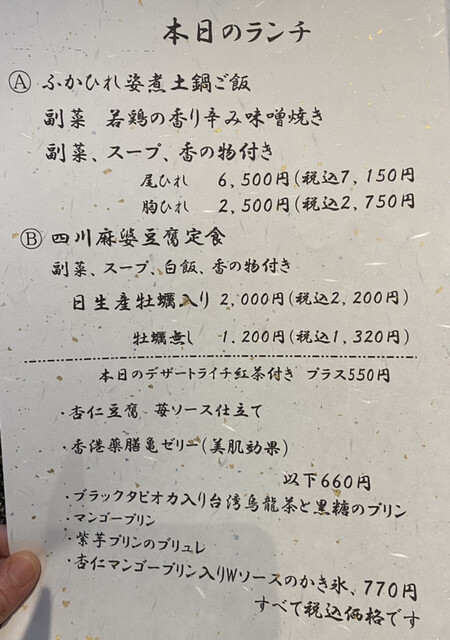 本日のランチ
Ⓐ ふかひれ姿煮土鍋ご飯
副菜 若鶏の香り辛み味噌焼き
副菜、スープ、香の物付き
尾ひれ 6,500円(税込7,150円
胸ひれ 2,500円(税込2,750円
Ⓑ 四川麻婆豆腐定食
副菜、スープ、白飯、香の物付き
日生産牡蠣入り 2,000円(税込2,200円)
牡蠣無し 1.200円(税込1,320円)
本日のデザートライチ紅茶付き プラス550円
・杏仁豆腐 苺ソース仕立て
・香港薬膳亀ゼリー(美肌効果)
以下660円
・ブラックタピオカ入り台湾烏龍茶と黒糖のプリン
・マンゴープリン
・紫芋プリンのブリュレ
・杏仁マンゴープリン入りWソースのかき氷、770円
すべて税込価格です